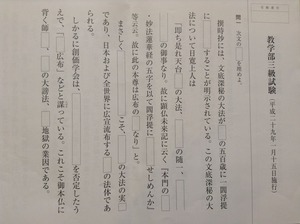 教学部三級試験
（平成二十九年一月十五日施行）
問一 次文の□を埋めよ。
撰時抄には、文底深秘の大法が□の五百歳に一閻浮提
に□することが明示されている。この文底深秘の大
法について日寛上人は
「即ち是れ天台□の大法、□の随一、□
□の御事なり。故に顕仏未来記に云く『本門の□
・妙法蓮華経の五字を以て閻浮提に□せしめんか』
等云云。故に此の本尊は広布の□なり」と。
まさしく、□こそ、□の大法の実
であり、日本および全世界に広宣流布する□の法体であ
られる。
しかるに創価学会は、□を否定したう
えで、「□広布」などと謀っている。これこそ御本仏に
背く師□の大謗法、□地獄の業因である。